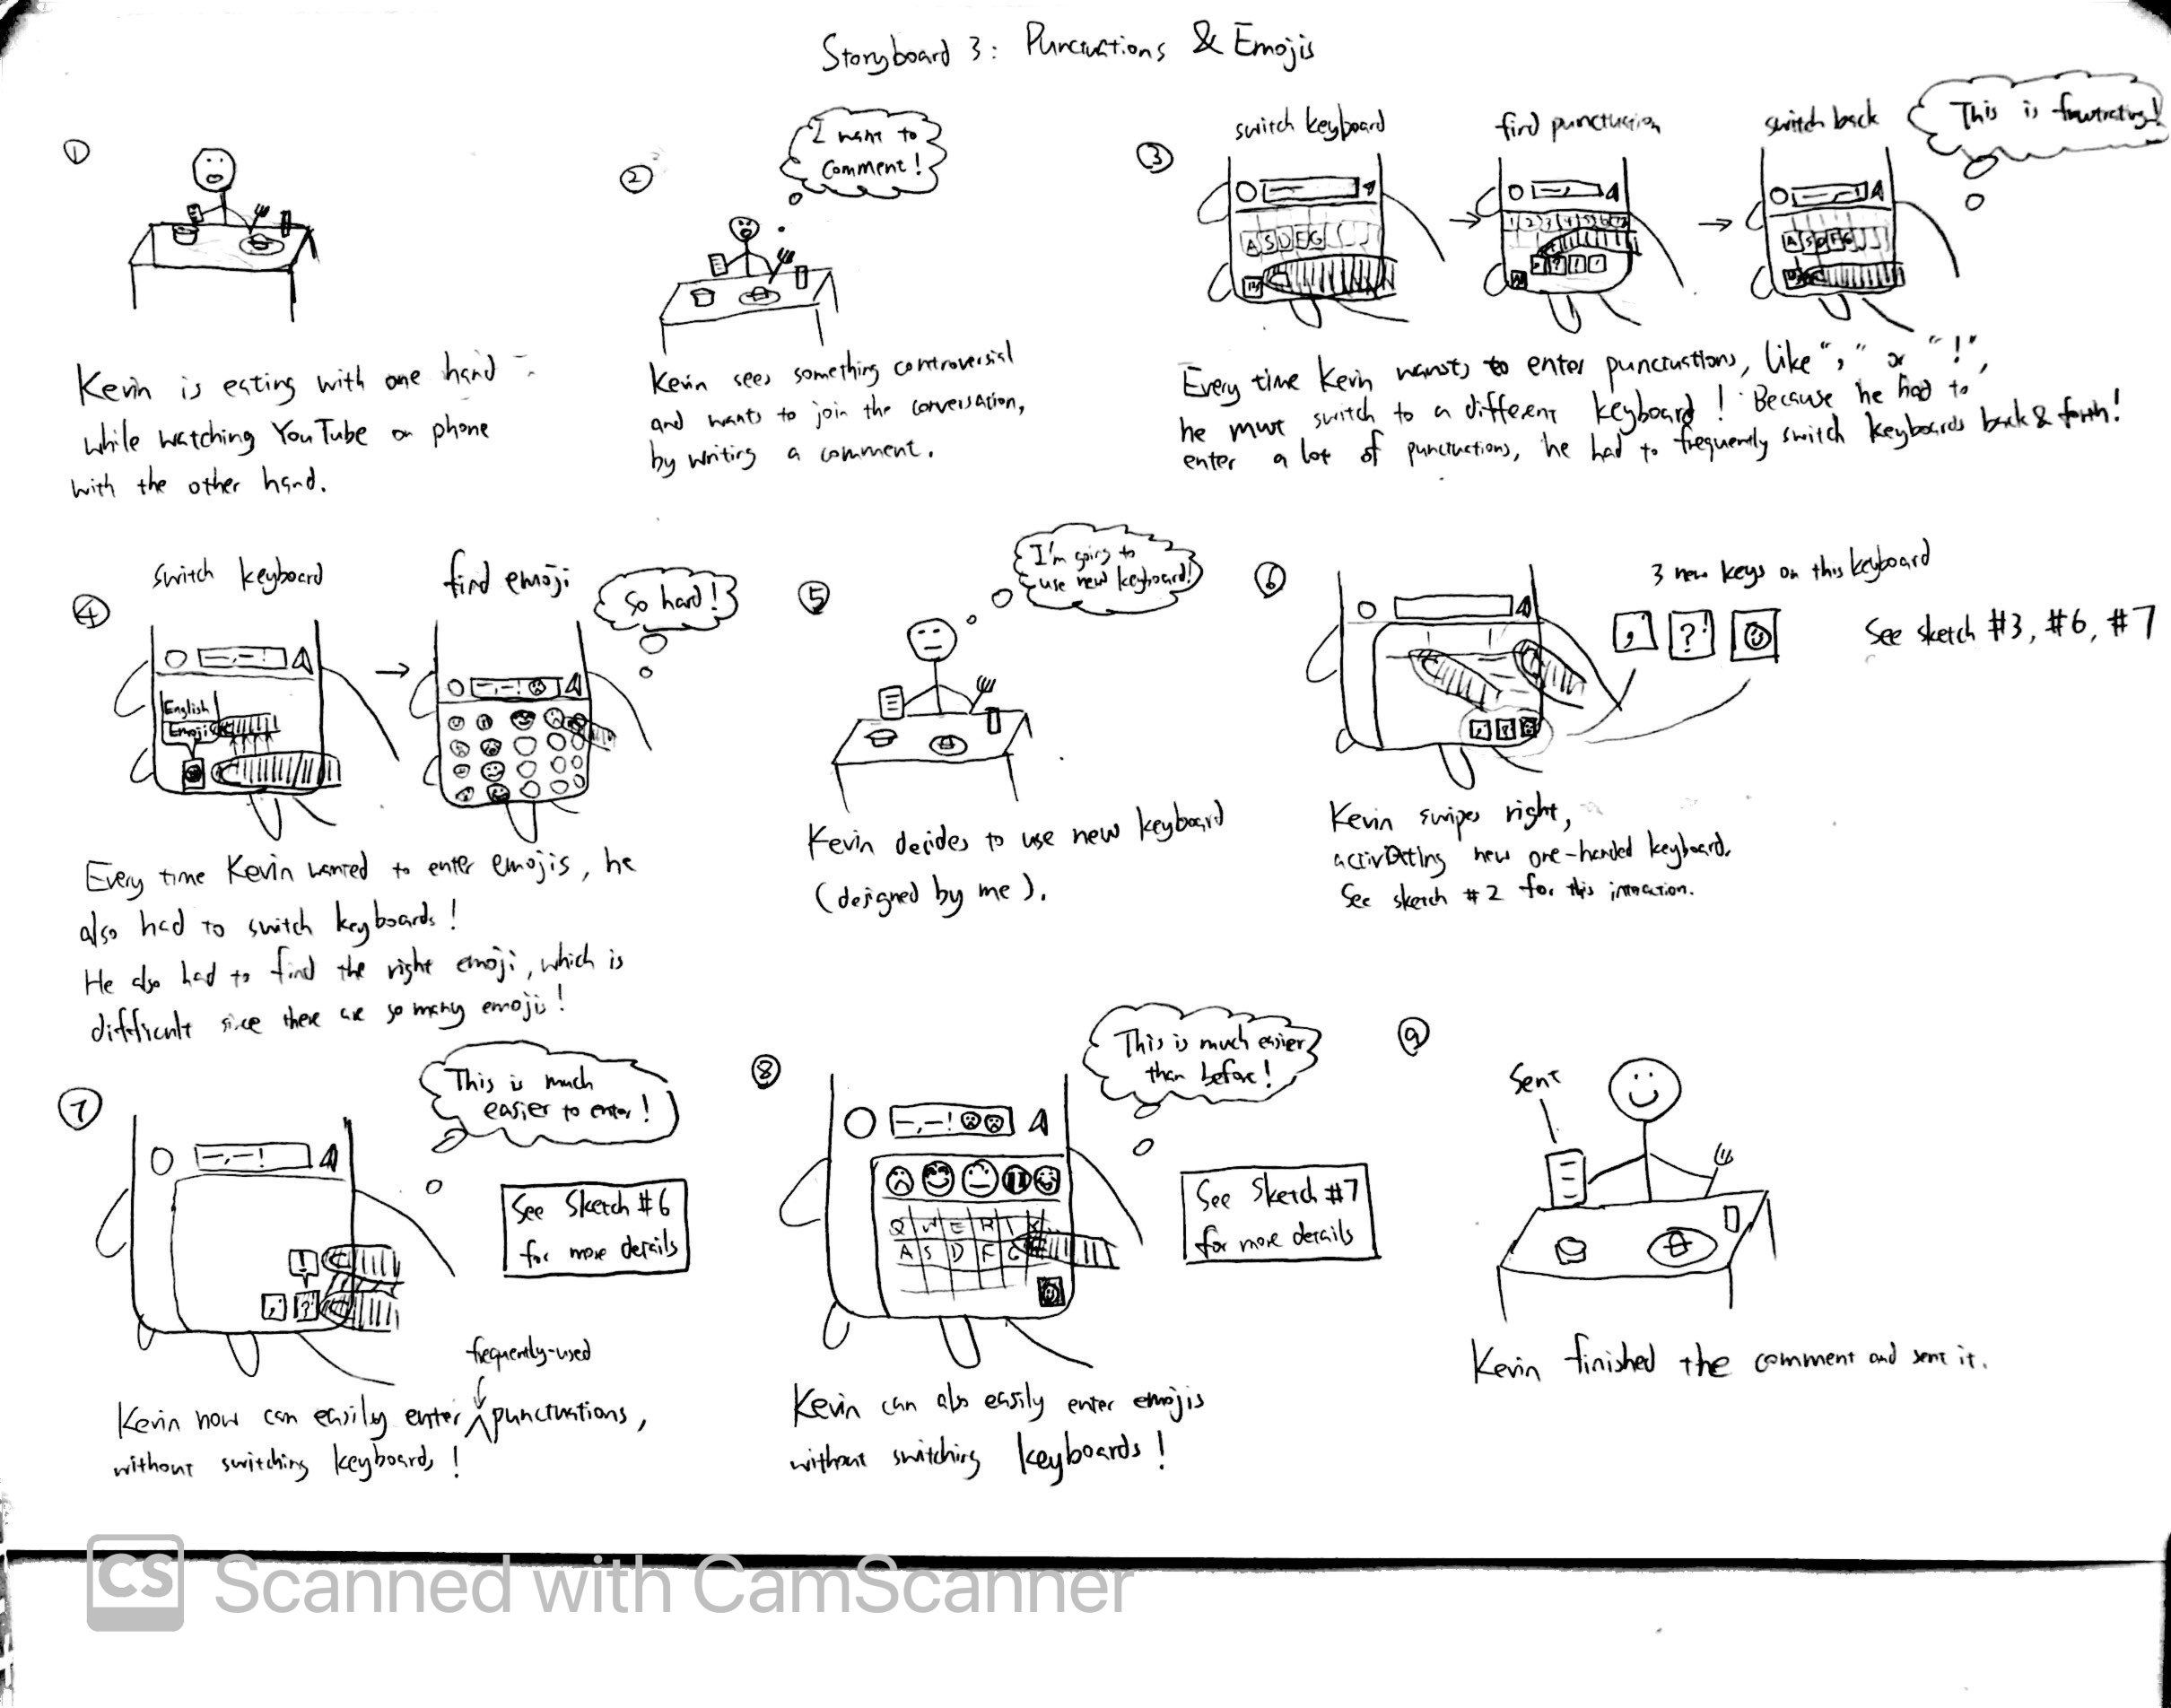 Storyboard 3: Punctuations & Emojis
1
Kevin is eating with one hand
while watching YouTube on phone
with the other hand.
2
I want to
comment!
Kevin sees something controversial
and wants to join the conversation,
by writing a comment.
3
switch keyboard
find punctuation
switch back
This is frustrating!
A S D F G
1 2 3 4 5 6 7
A S D F G
Every time Kevin wants to enter punctuations, like "," or "!",
he must switch to a different keyboard! Because he had to
enter a lot of punctuations, he had to frequently switch keyboards back & forth!
4
switch keyboard
find emoji
So hard!
English
Emoji
Every time Kevin wanted to enter emojis, he
also had to switch keyboards!
He also had to find the right emoji, which is
difficult since there are so many emojis!
5
I'm going to
use new keyboard!
Kevin decides to use new keyboard
(designed by me).
6
3 new keys on this keyboard
, ?!
See sketch #3, #6, #7
Kevin swipes right,
activating new one-handed keyboard.
See sketch #2 for this interaction.
7
This is much
easier to enter!
!
, ?
See Sketch #6
for more details
frequently-used
Kevin now can easily enter punctuations,
without switching keyboards!
8
This is much easier
than before!
Q W E R
A S D F G
See Sketch #7
for more details
Kevin can also easily enter emojis
without switching keyboards!
9
Sent
Kevin finished the comment and sent it.
CS Scanned with CamScanner